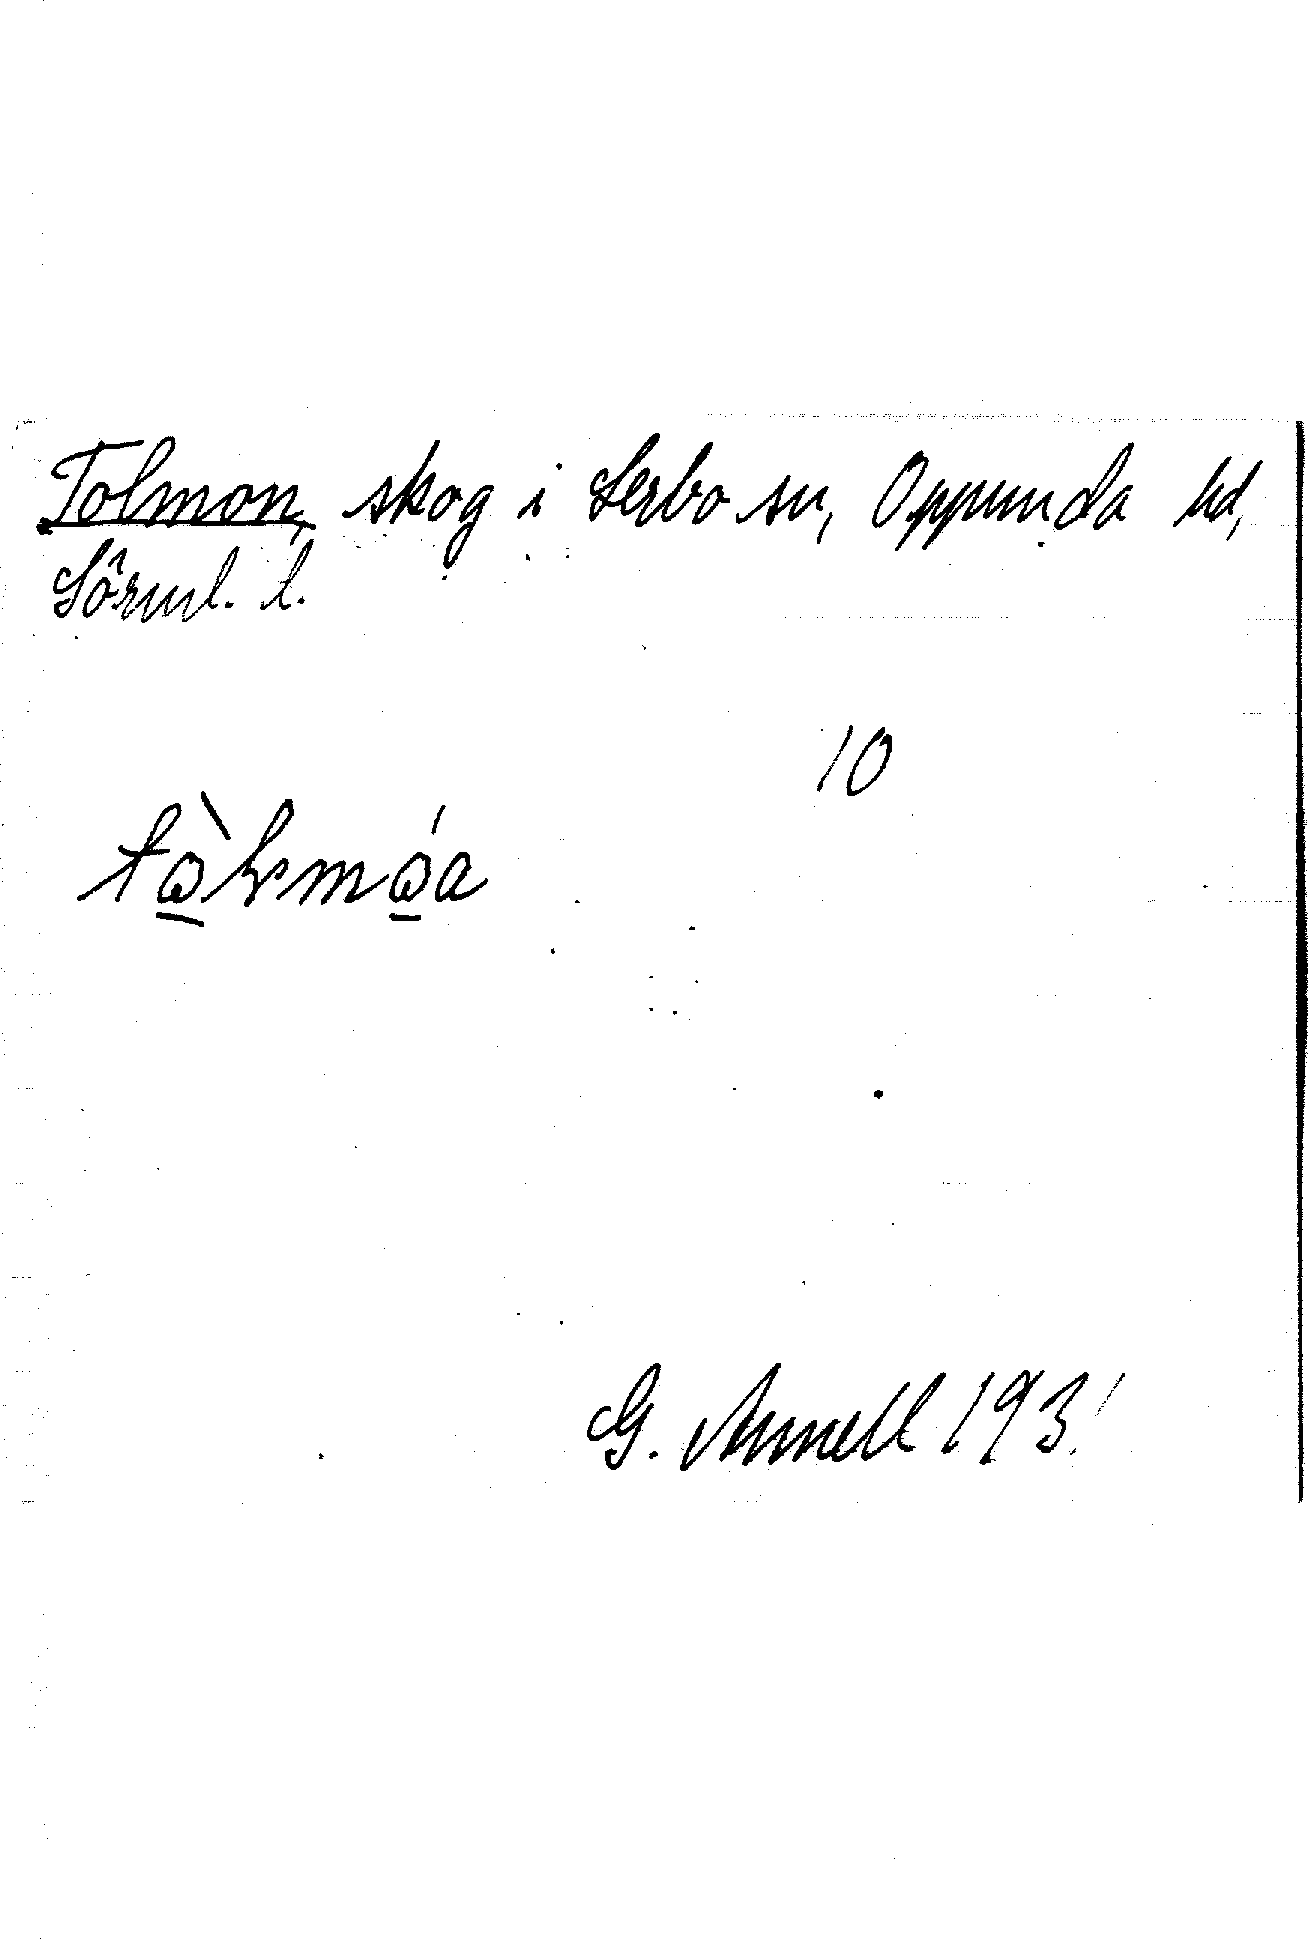 Tolmon, skog i Lerbo sn, Oppunda hd,
Sörml. l.
10
G. Annell 1931